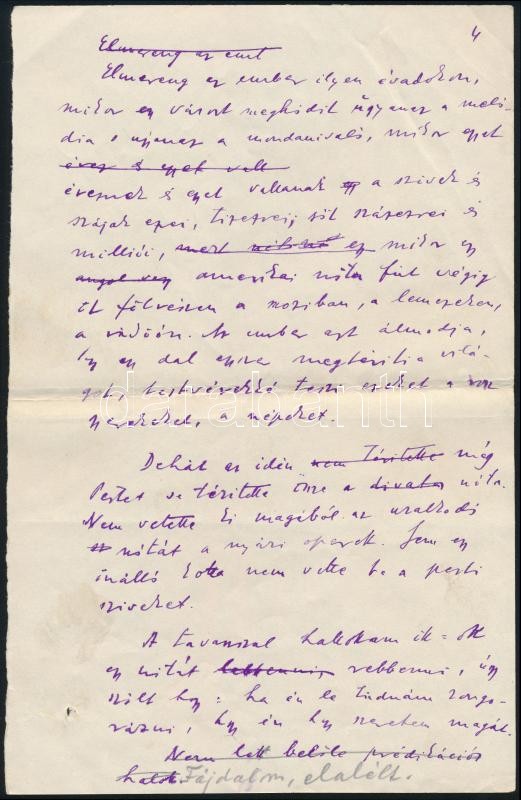 4
Elmereng az emb
Elmereng az ember ilyen évadokon,
mikor egy várost meghódít ugyanaz a meló-
dia s ugyanaz a mondanivaló, mikor egyet
évez s egyet vall
éveznek és egyet vallanak a szivek és
szájak ezrei, tizezrei, sőt százezrei és
milliói, mert mikor egy
angol vagy amerikai nóta fut végig
öt földrészen a moziban, a lemezeken,
a rádióón. Az ember azt álmodja,
így egy dal egyszer megtéríti a vilá-
got, testvérekké teszi ezeket a
gyerekeket, a népeket.
Dehát az idén nem téritette még
Pestet se téritette össze a divatos nóta.
Nem vetette ki magából az uralkodó
nótát a nyári operett. Sem egy
önálló kotta nem vette be a pesti
sziveket.
A tavasszal hallottam itt-ott
egy nótát lebbenni, rebbenni, úgy
szólt hogy: ha én le tudnám zongo-
rázni, hogy én hogy szeretem magát.
Nem lett belőle prédikációs
halott. Fájdalom, elalélt.
darabanth